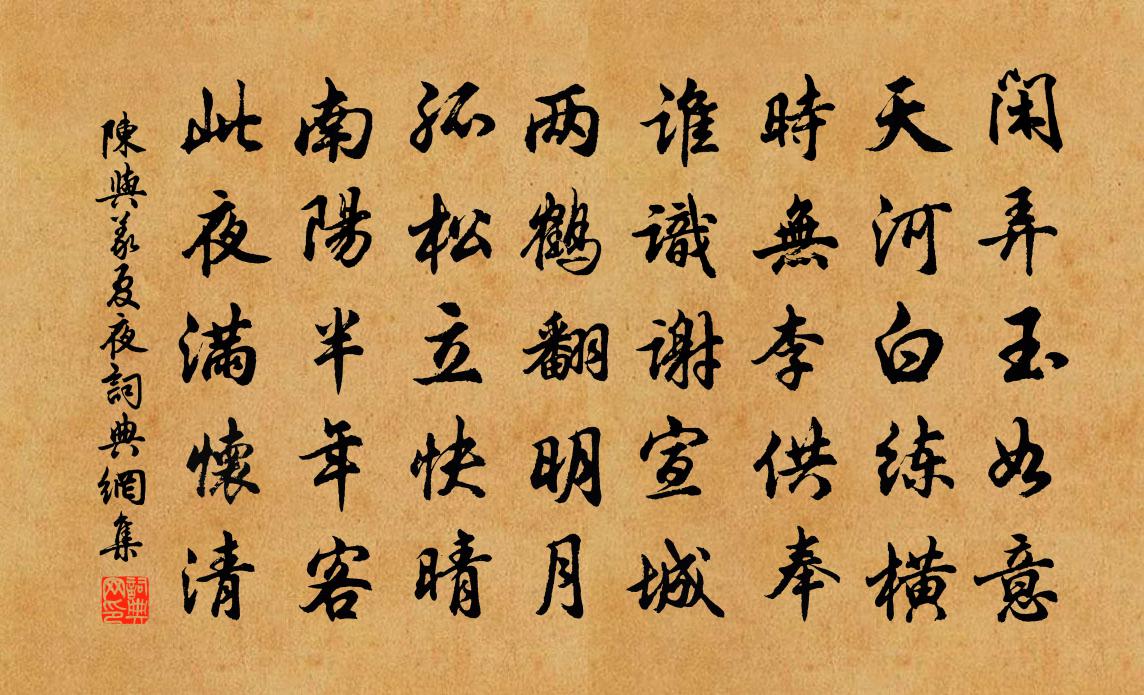 闲弄玉如意
天河白练橫
時無李供奉
谁識谢宣城
两鹤翻明月
孤松立快晴
南陽半年客
此夜满懷清
陳與義夏夜詞典網集
詞典网印